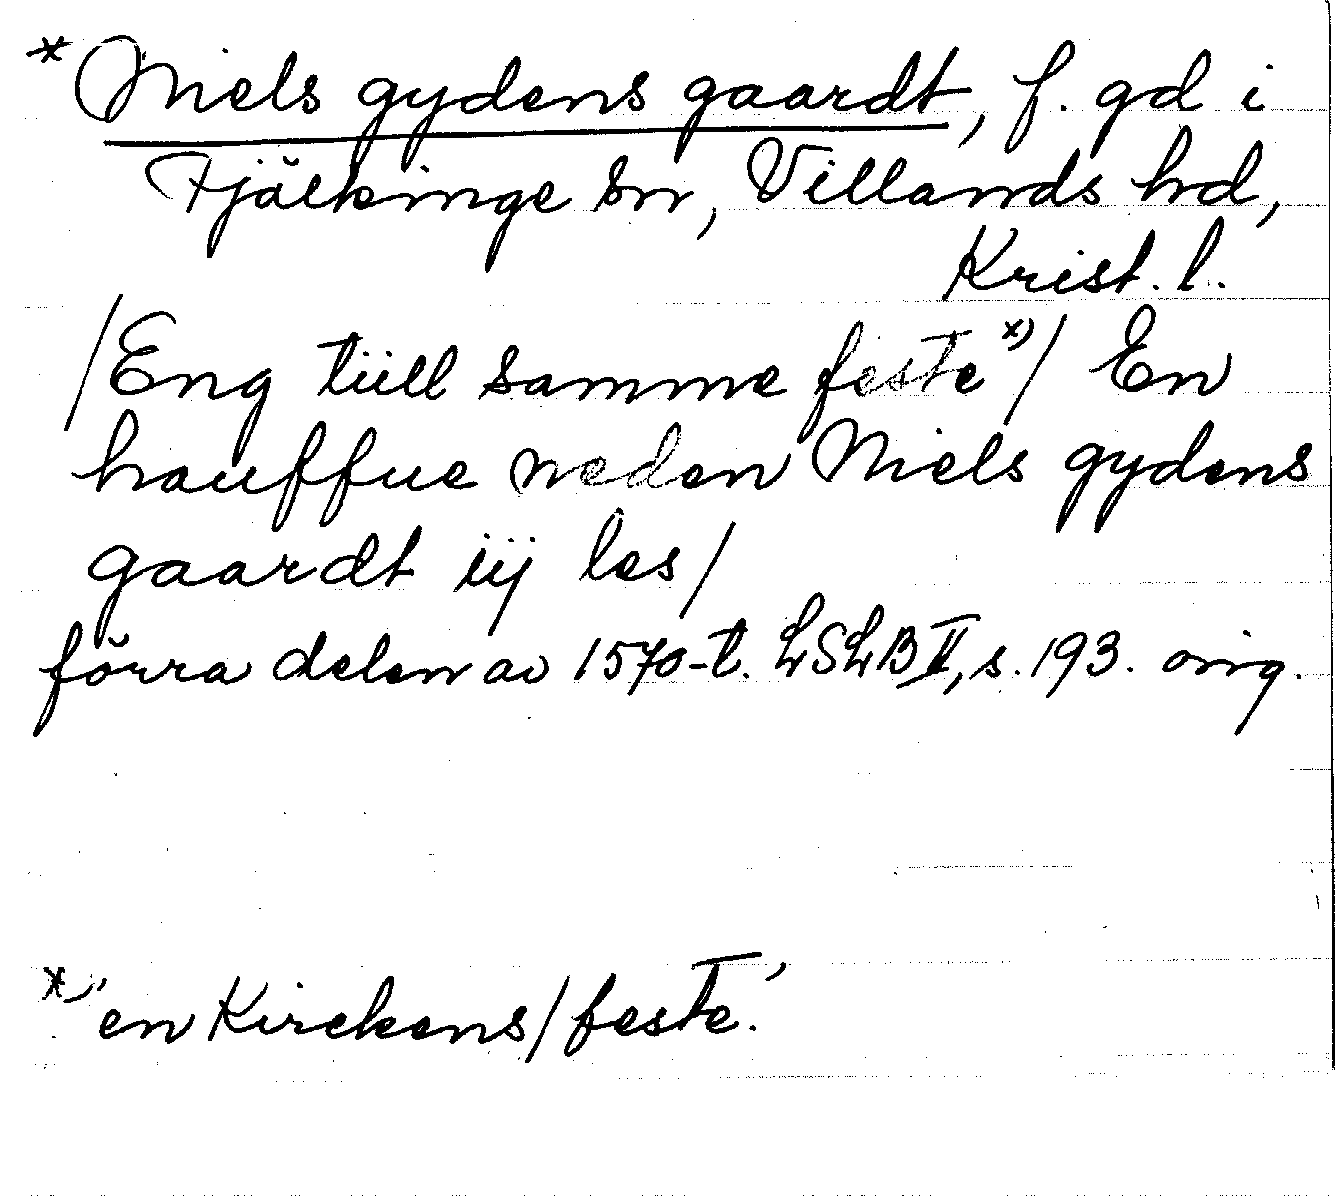 * Niels gydens gaardt, f. gd i
Fjälkinge sn, Villands hd,
Krist. l.
/Eng tiill samme feste*)/ En
hauffue neden Niels gydens
gaardt iij les/
förra delen av 1570-t. LSLB II, s. 193. orig.
*) 'en Kirckens/feste.'